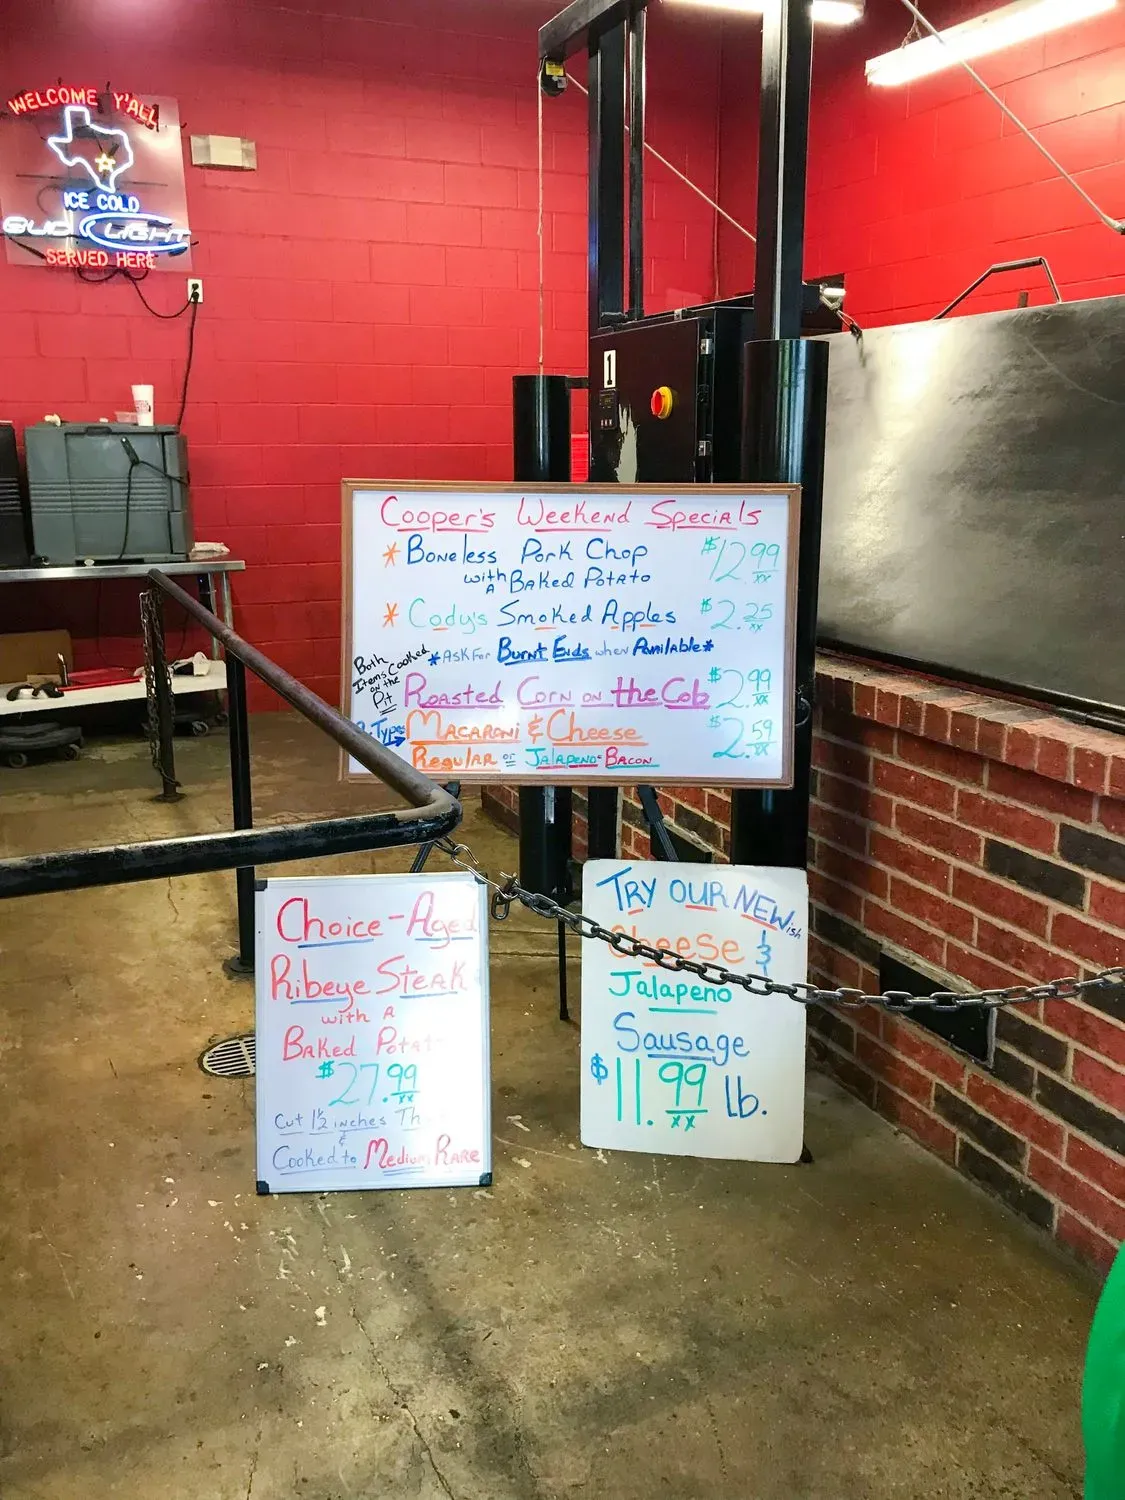 WELCOME Y'ALL
ICE COLD
BUD LIGHT
SERVED HERE
1
Cooper's Weekend Specials
* Boneless Pork Chop $12.99
with A Baked Potato
* Cody's Smoked Apples $2.25
*Ask For Burnt Ends when Available*
Both
Items Cooked
on the
Pit
Roasted Corn on the Cob $2.99
Macaroni & Cheese $2.59
Regular or Jalapeno-Bacon
Choice-Aged
Ribeye Steak
with A
Baked
$27.99
Cut 1½ inches
&
Cooked to Medium Rare
Try our NEWish
Cheese &
Jalapeno
Sausage
$11.99 lb.